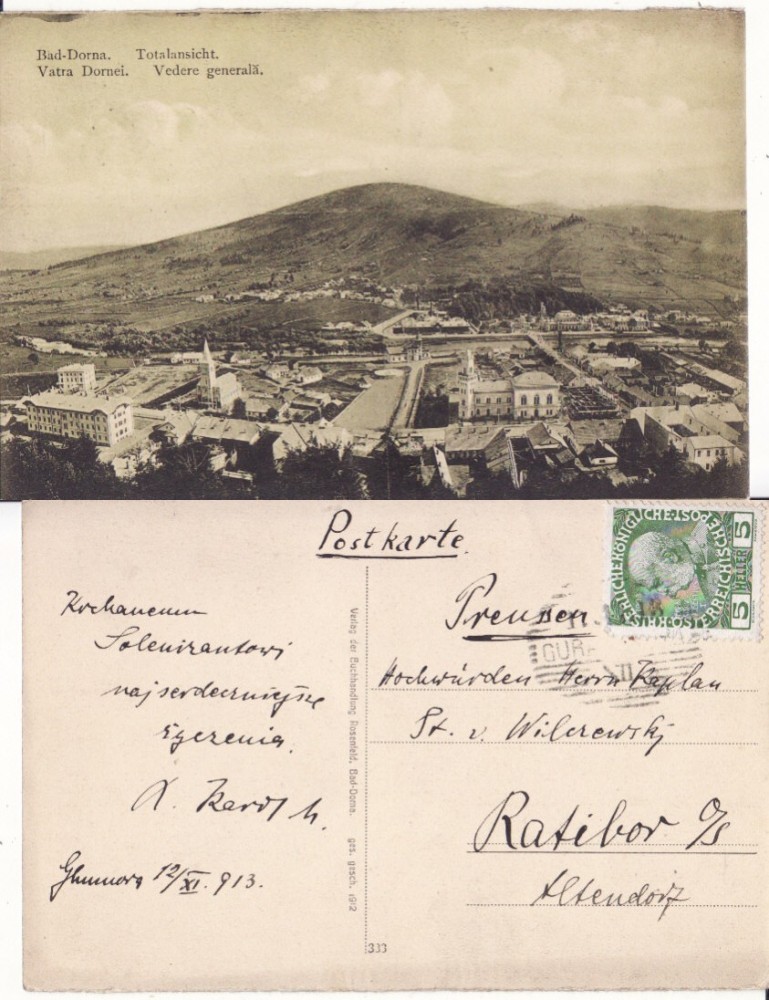 Bad-Dorna. Totalansicht.
Vatra Dornei. Vedere generală.
Postkarte.
Kochanemu
Solenizantowi
najserdeczniejsze
życzenia.
12/XI. 913.
Verlag der Buchhandlung Rosenfeld, Bad-Dorna. ges. gesch. 1912
333
KAISERLICHE KÖNIGLICHE ÖSTERREICHISCHE POST
5 HELLER 5
GURA
XII
Preussen
Hochwürden Herrn Kaplan
St. v. Wilczewski
Ratibor O/S
Altendorf